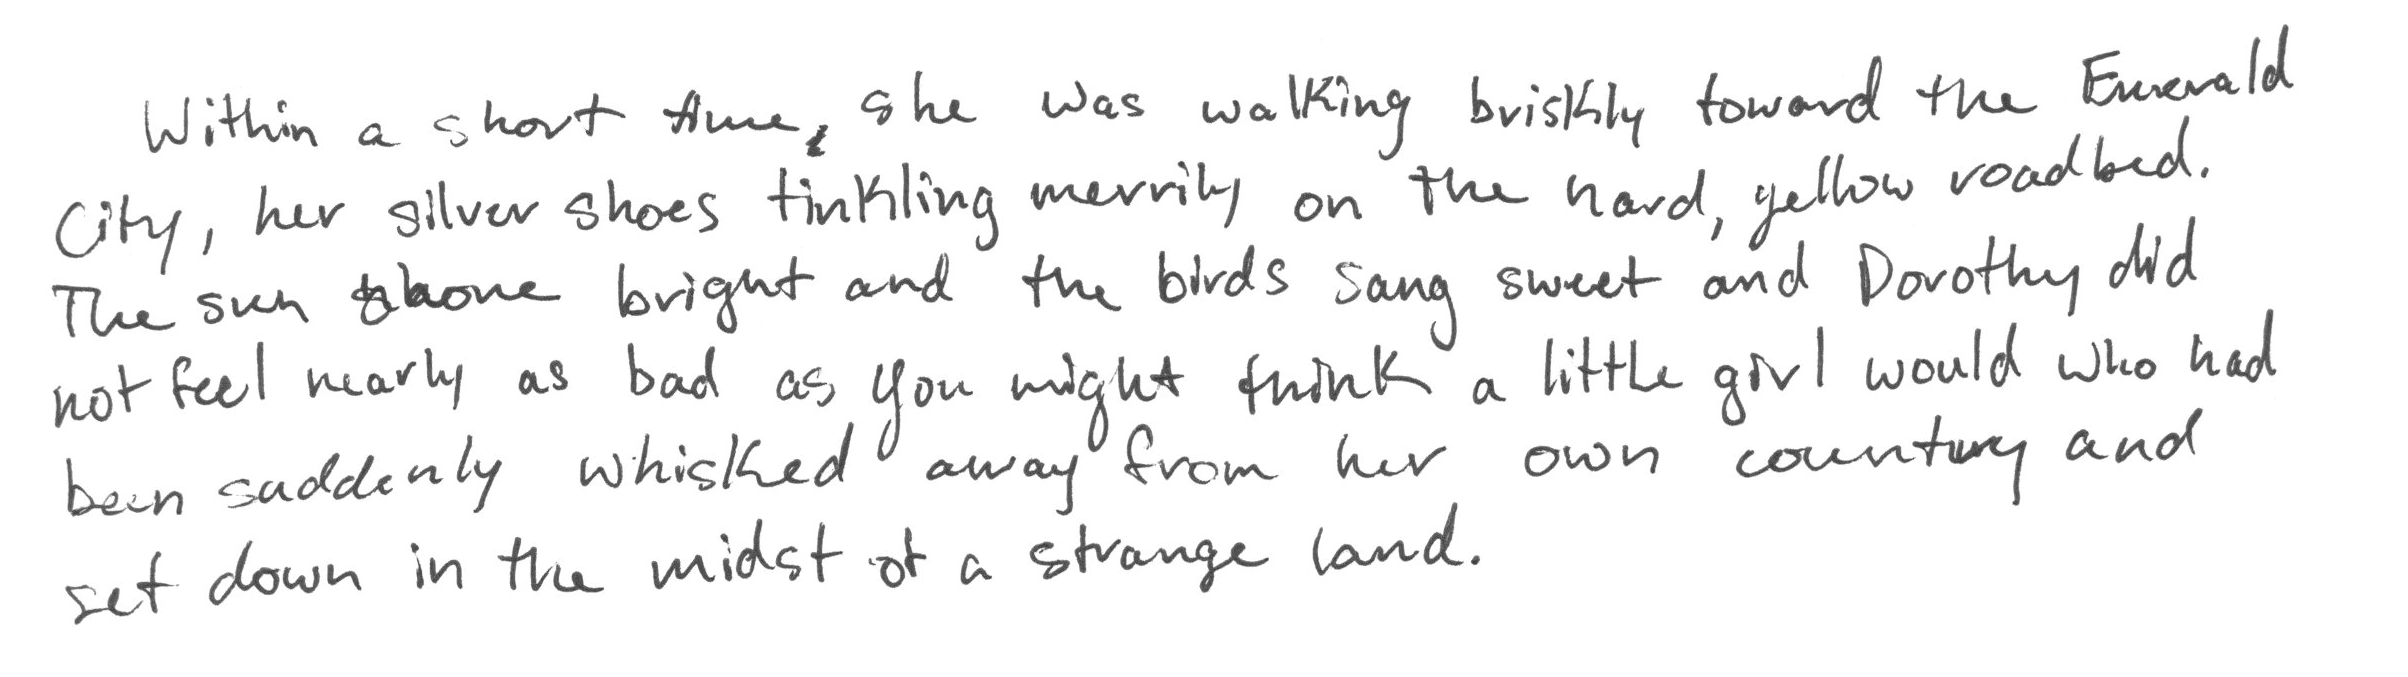 Within a short time, she was walking briskly toward the Emerald
City, her silver shoes tinkling merrily on the hard, yellow roadbed.
The sun shone bright and the birds sang sweet and Dorothy did
not feel nearly as bad as you might think a little girl would who had
been suddenly whisked away from her own country and
set down in the midst of a strange land.